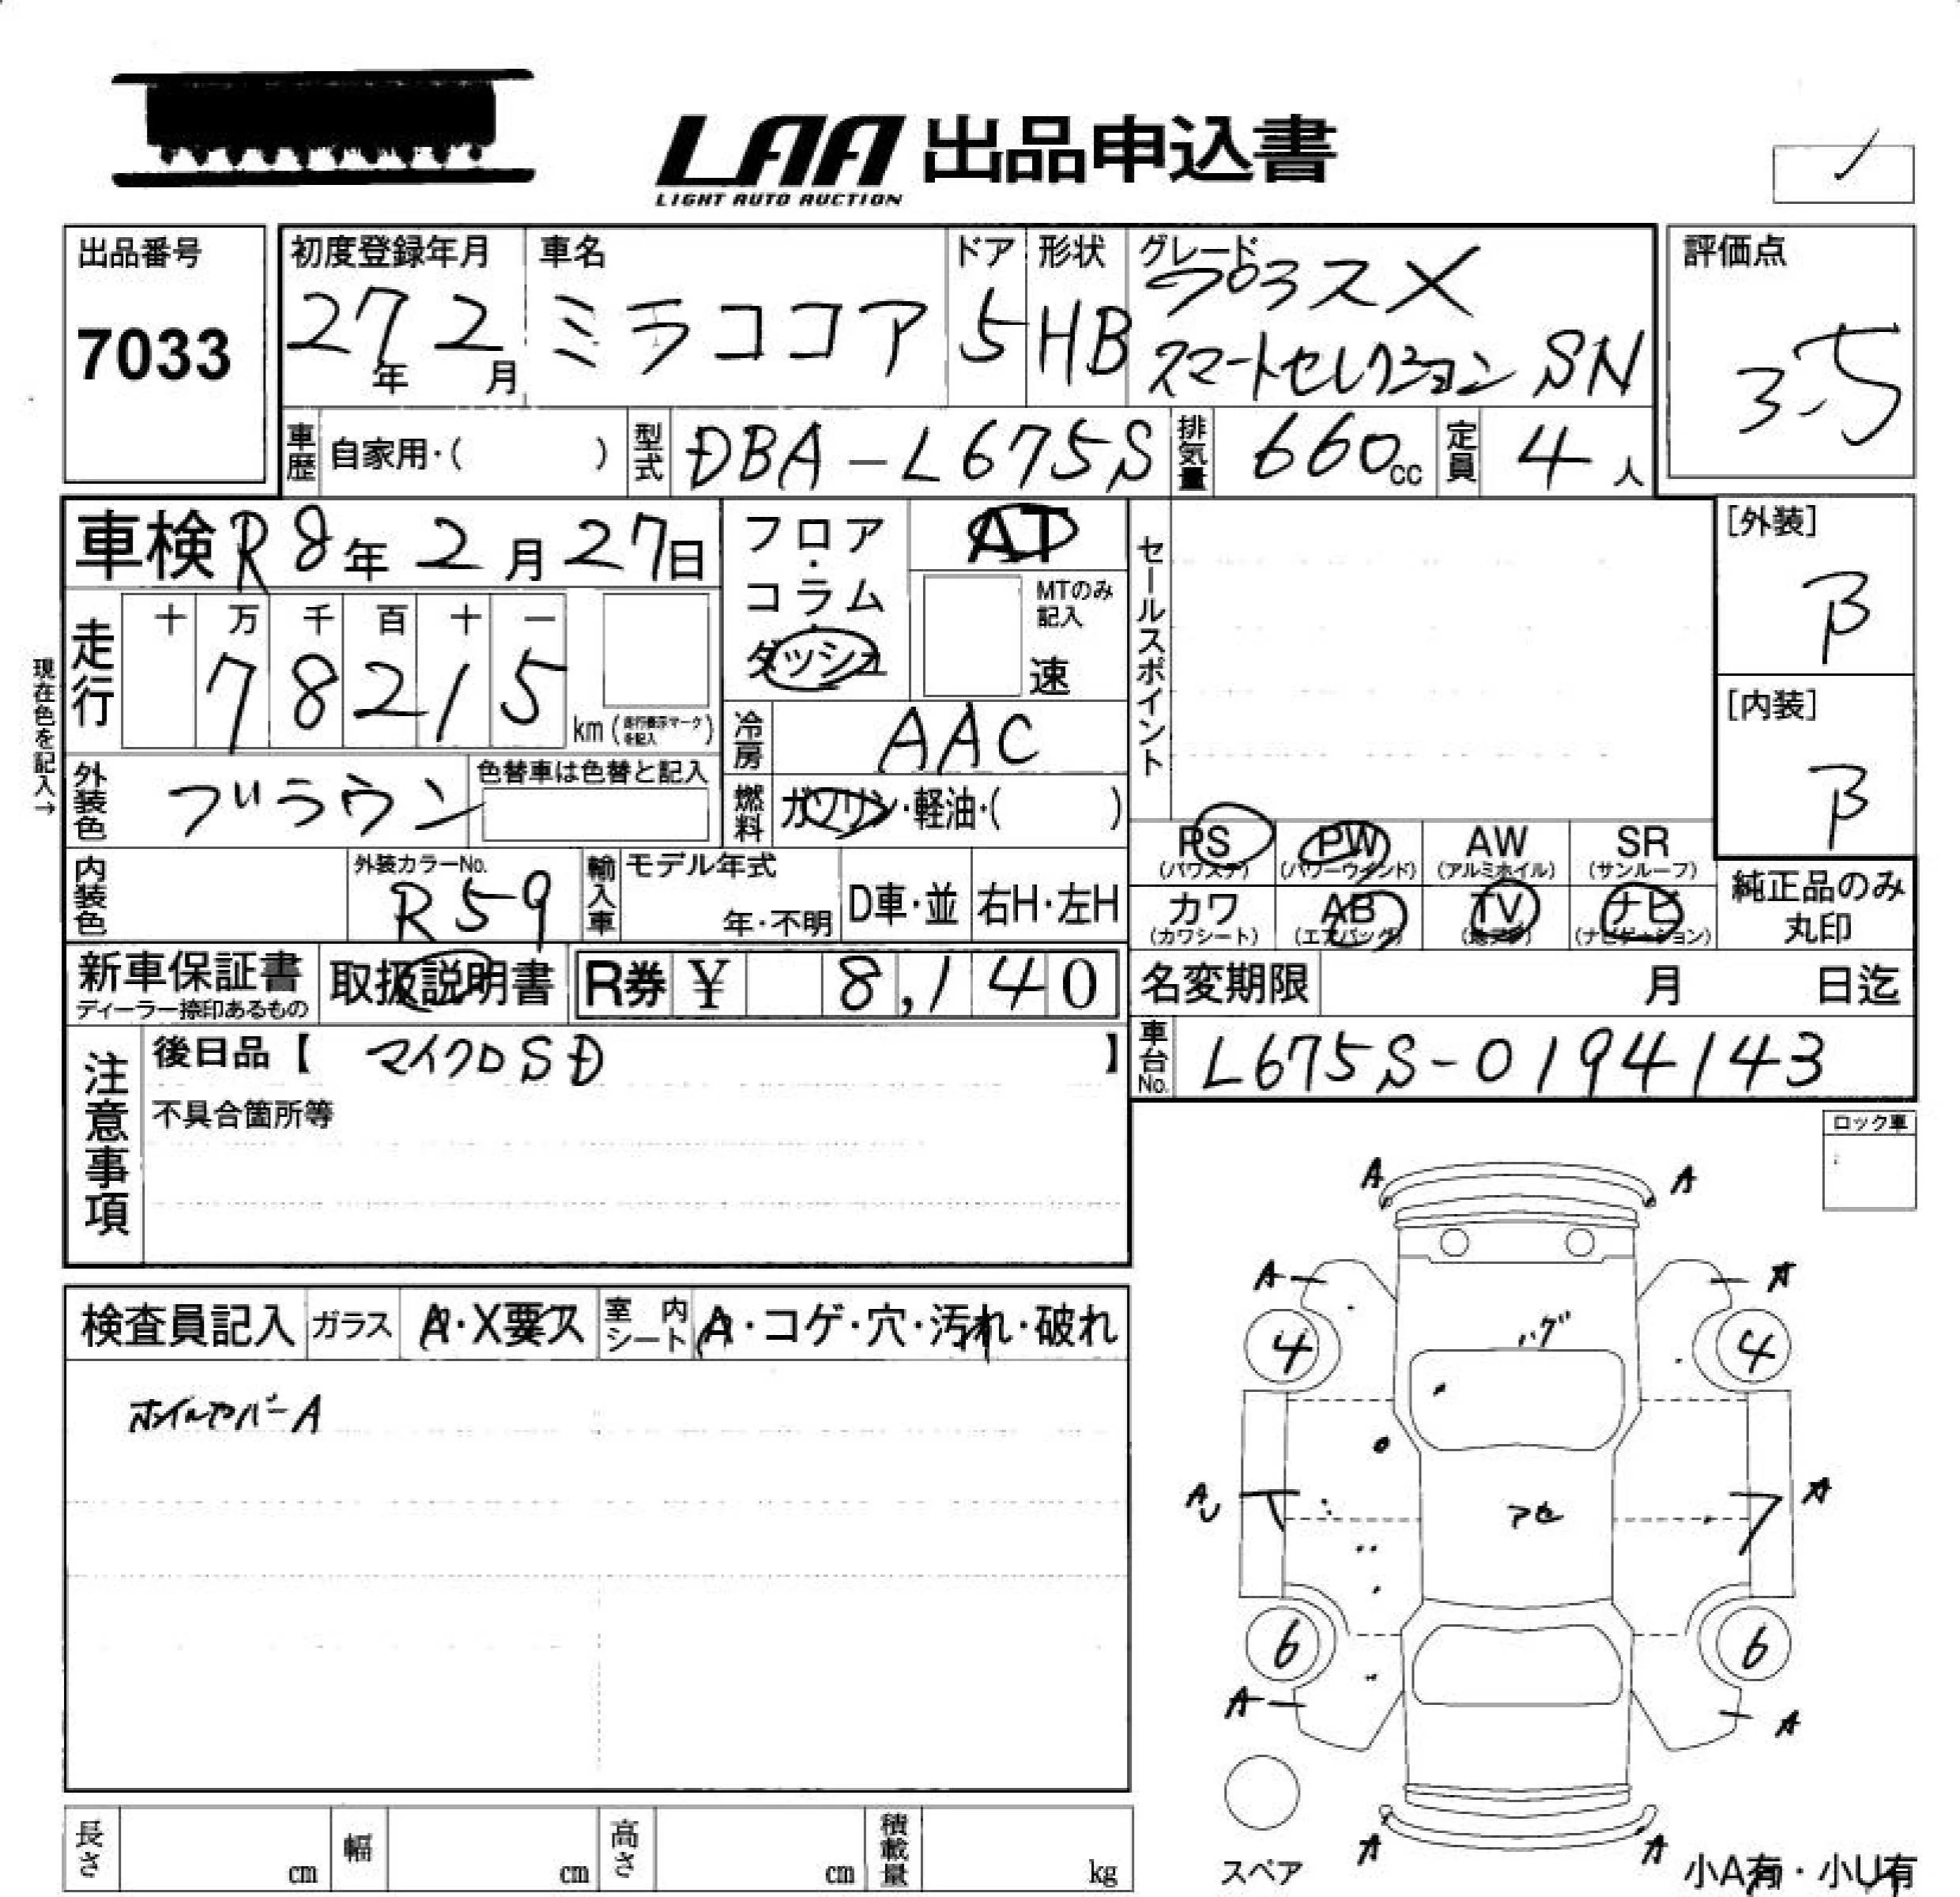 LAA 出品申込書
LIGHT AUTO AUCTION
出品番号
7033
初度登録年月
27年 2月
車名
ミラココア
ドア
5
形状
HB
グレード
プラスX
スマートセレクション SN
評価点
3.5
車歴 自家用・( )
型式 DBA-L675S
排気量 660cc
定員 4人
車検 R8年 2月 27日
フロア・コラム・ダッシュ
AT
MTのみ記入
速
セールスポイント
[外装]
B
[内装]
B
現在色を記入→
走行 十 万 千 百 十 一
78215
km (走行表示マークを記入)
冷房 AAC
外装色 ブラウン
色替車は色替と記入
燃料 ガソリン・軽油・( )
内装色
外装カラーNo.
R59
輸入車
モデル年式
年・不明
D車・並
右H・左H
PS (パワステ)
PW (パワーウインド)
AW (アルミホイル)
SR (サンルーフ)
カワ (カワシート)
AB (エアバッグ)
TV (地デジ)
ナビ (ナビゲーション)
純正品のみ丸印
新車保証書
ディーラー捺印あるもの
取扱説明書
R券 ¥ 8,140
名変期限 月 日迄
車台No. L675S-0194143
注意事項
後日品【 マイクロSD 】
不具合箇所等
ロック車
検査員記入
ガラス A・X要ス
室内シート A・コゲ・穴・汚れ・破れ
ホイルカバーA
A A
A A
ハゲ
4 4
AU A
アセ
6 6
A A
A A
スペア
小A有・小U有
長さ cm
幅 cm
高さ cm
積載量 kg